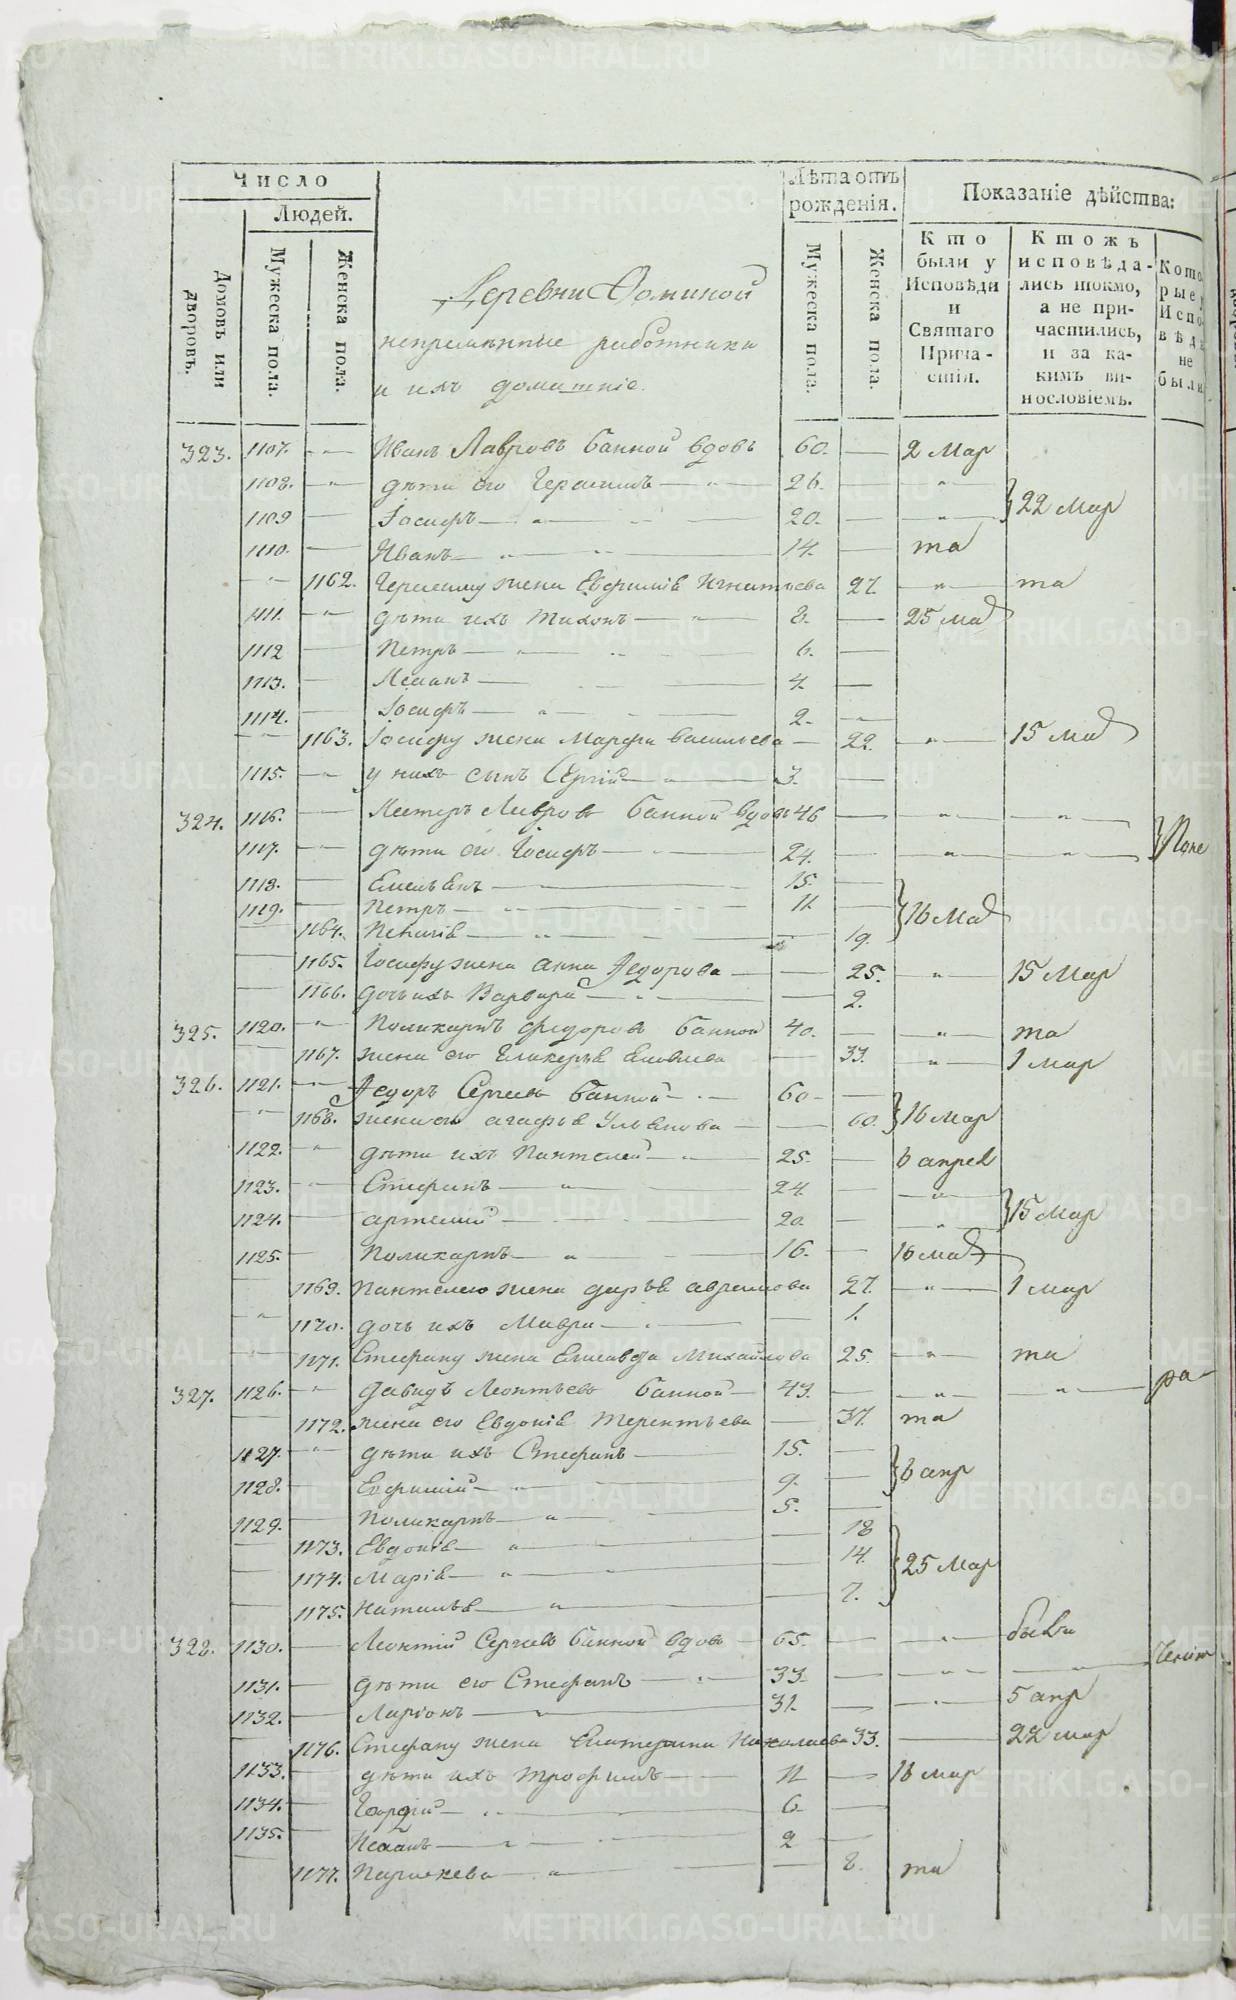 METRIKI.GASO-URAL.RU
Число
Людей.
Домовъ или дворовъ.
Мужеска пола.
Женска пола.
Деревни Фоминой
непременные работники
и ихъ домашние
Лѣта отъ рожденія.
Мужеска пола.
Женска пола.
Показаніе дѣйства:
Кто были у Исповѣди и Святаго Прича-стія.
Ктожъ исповѣда-лись токмо, а не при-частились, и за ка-кимъ ви-нословіемъ.
Кото рые у Испо вѣди не были
323. 1107. — Иванъ Лавровъ Банной вдовъ 60. — 2 мар
1108. " дѣти его Герасимъ — 26. — "
1109 — Іосифъ — 20. — " } 22 мар
1110. — Иванъ — 14. — та
" 1162. Герасиму жена Евфимія Игнатьева 27. " та
1111. " дѣти ихъ Тихонъ — 8. — 25 ма
1112 — Петръ — 6. —
1113. — 4. —
1114. — Іосифъ — 2. —
" 1163. Іосифу жена Марфа Васильева — 22. " 15 ма
1115. " у нихъ сынъ Сергій — 3. —
324. 1116. — Лавровъ Банной вдовъ 46 — " "
1117. " дѣти его Іосифъ — 24. — " "
1118. — Емельянъ — 15. —
1119. — Петръ — 11. — } 16 ма
1164. — 19.
— 1165. Іосифу жена Анна Федорова — 25. " 15 мар
— 1166. дочь ихъ Варвара — 2.
325. 1120. " Поликарпъ Федоровъ Банной 40. — " та
— 1167. жена его Гликерья — 33. " 1 мар
326. 1121. — Федоръ Сергеевъ Банной — 60 —
" 1168. жена его Агафья Ульянова — 60. } 16 мар
1122. " дѣти ихъ Пантелей — 25. — 6 апрел
1123. " Стефанъ — 24. — "
1124. — Артемий — 20. — " } 15 мар
1125. — Поликарпъ — 16. — 16 ма
— 1169. Пантелею жена Дарья Аврамова 27. " 1 мар
" 1170. дочь ихъ Мавра — 1.
" 1171. Стефану жена Елисавефа Михайлова 25. " та
327. 1126. " Давидъ Леонтьевъ Банной — 43. — " " ра
— 1172. жена его Евдокія Терентьева — 37. та
1127. " дѣти ихъ Стефанъ — 15. —
1128. — Евфимій — 9. — } 6 апр
1129. — Поликарпъ — 5. —
— 1173. Евдокія — 18
— 1174. Марія — 14. } 25 мар
— 1175. Наталья — 7.
328. 1130. — Леонтій Сергеевъ Банной вдовъ — 65. — "
1131. — дѣти его Стефанъ — 33. — " "
1132. — Ларіонъ — 31. — " 5 апр
— 1176. Стефану жена Екатерина Николаева 33. — 22 мар
1133. — дѣти ихъ Трофимъ — 11 — 16 мар
1134. — 6. —
1135. — 2 —
— 1177. Параскева — 8. та